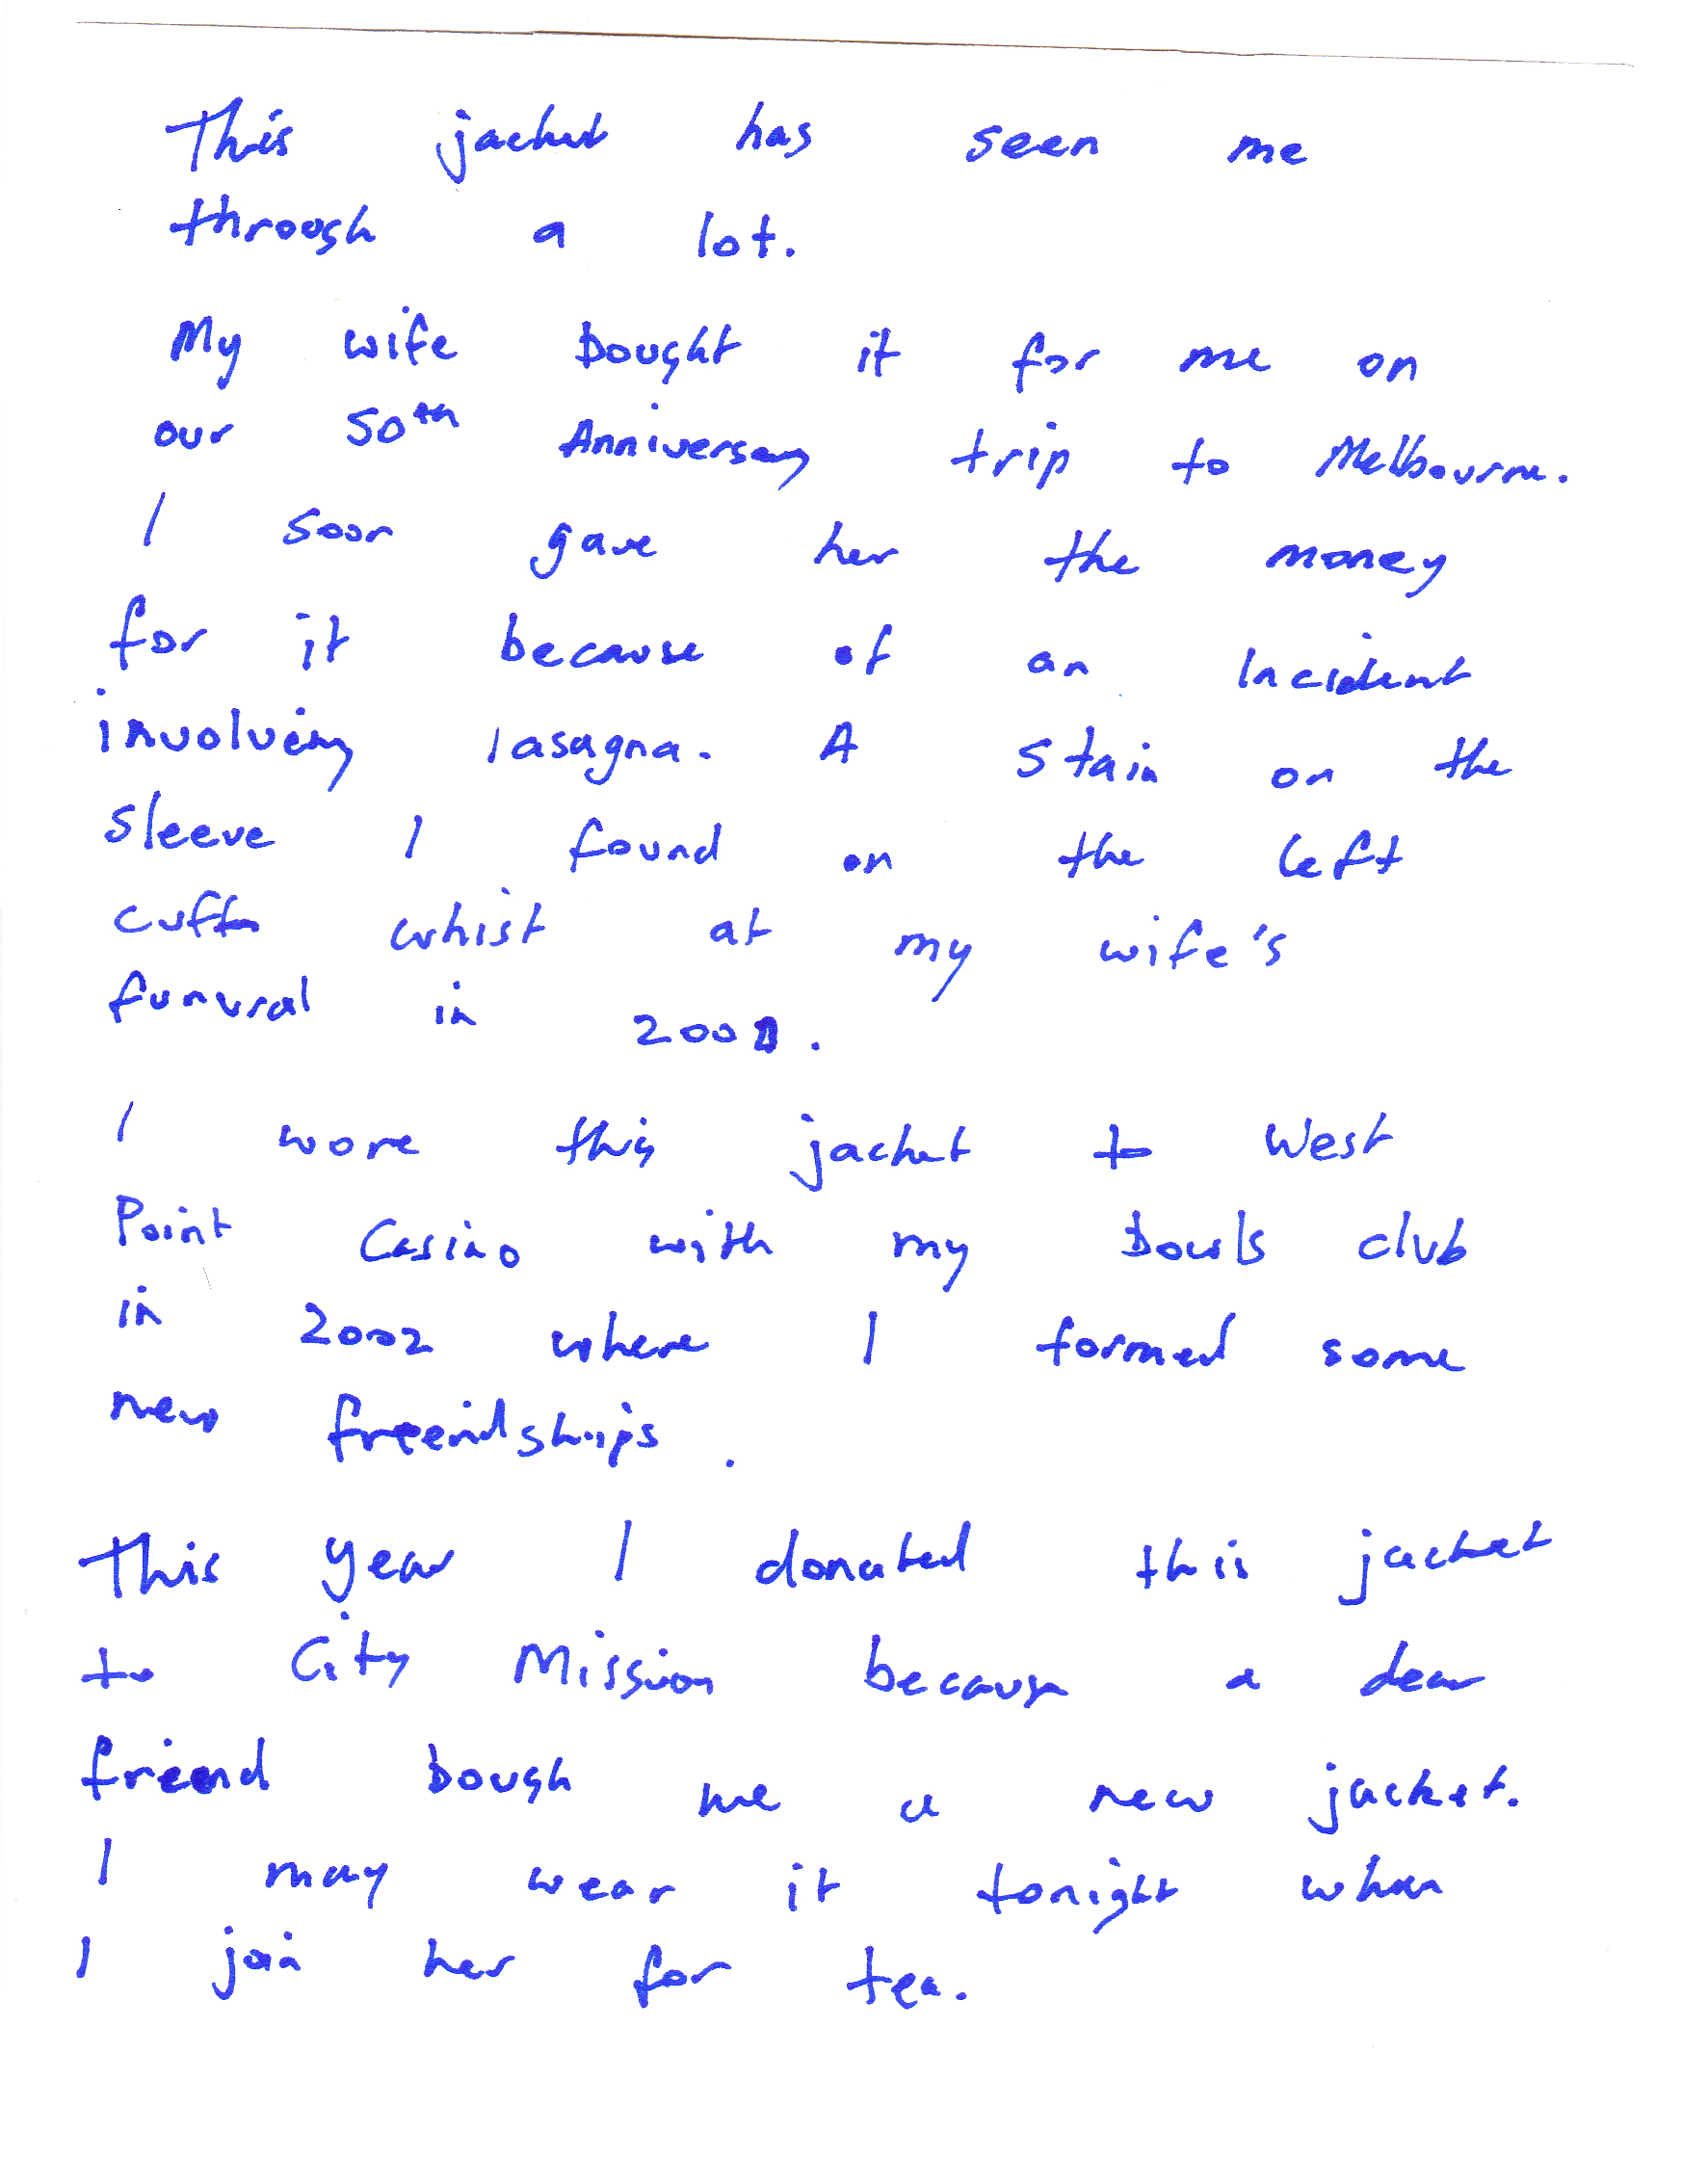 This jacket has seen me
through a lot.
My wife bought it for me on
our 50th Anniversary trip to Melbourne.
I soon gave her the money
for it because of an incident
involving lasagna. A stain on the
sleeve I found on the left
cuff whist at my wife's
funural in
I wore this jacket to West
Point Casino with my bowls club
in 2002 where I formed some
new freendships.
This year I donated this jacket
to City Mission because a dear
friend bough me a new jacket.
I may wear it tonight when
I join her for tea.